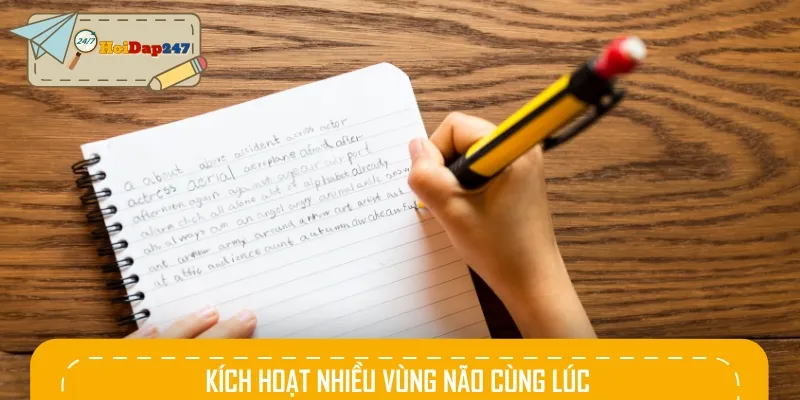 24/7
HoiDap247
a about above accident across actor
actress aerial aeroplane afraid after
afternoon again against age air airport
alarm clock all alone a lot of alphabet already
also always am an angel angry animal ankle
ant army around arrow art artist
at attic audience aunt autumn
KÍCH HOẠT NHIỀU VÙNG NÃO CÙNG LÚC